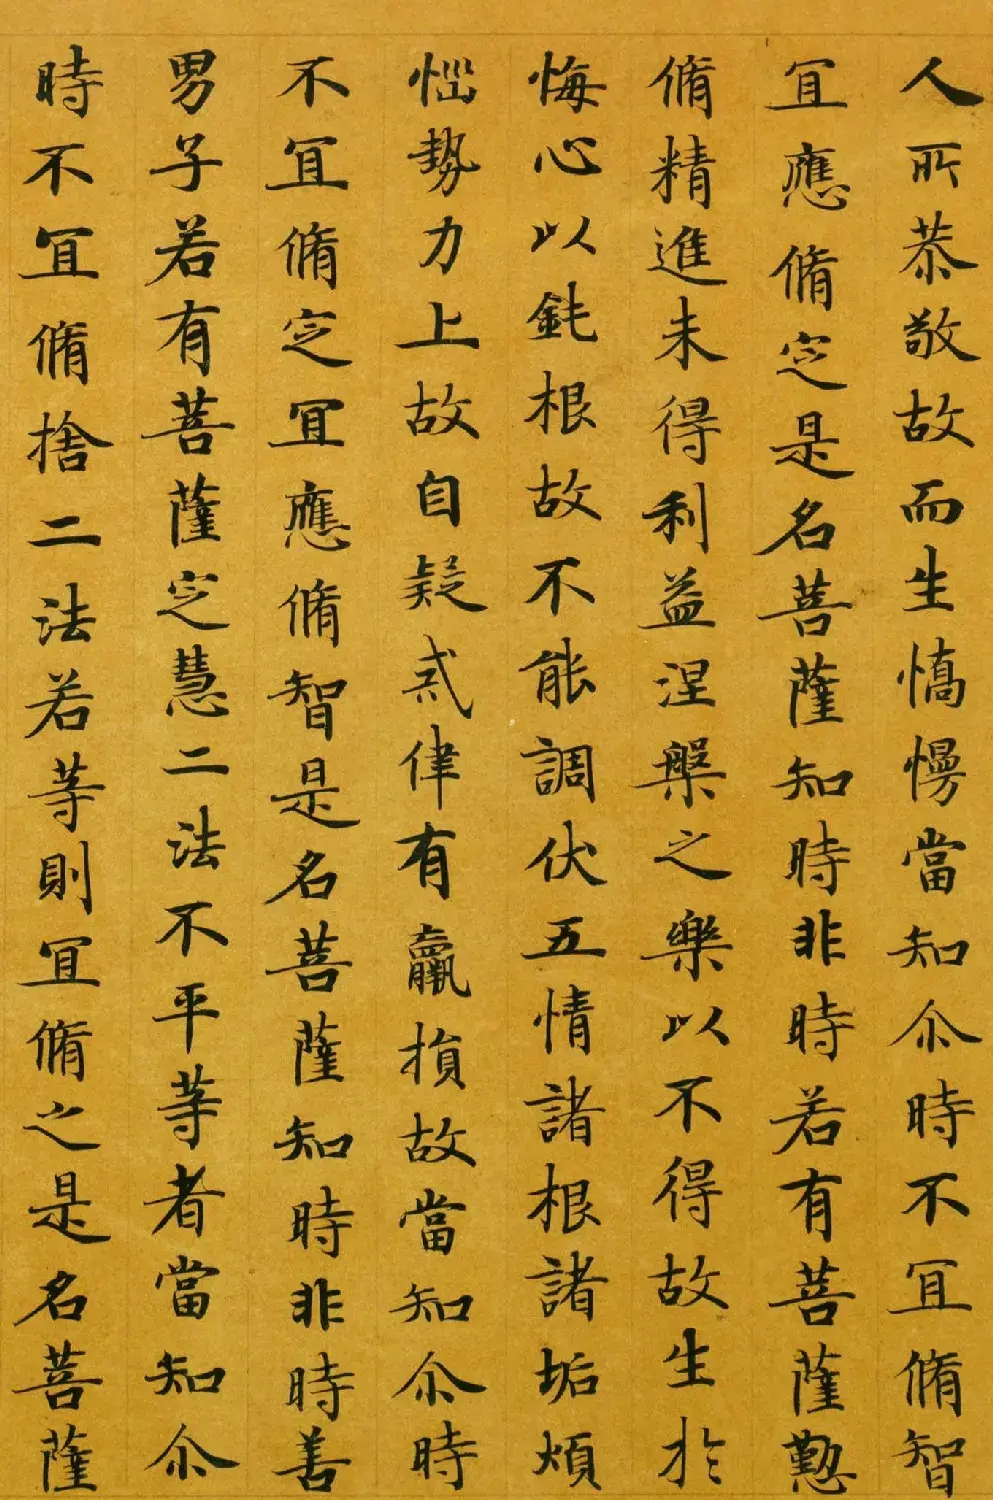 人所恭敬故而生憍慢當知尒時不冝脩智
冝應脩定是名菩薩知時非時若有菩薩懃
脩精進未得利益涅槃之樂以不得故生於
悔心以鈍根故不能調伏五情諸根諸垢煩
惱勢力上故自疑戒律有羸損故當知尒時
不冝脩定冝應脩智是名菩薩知時非時善
男子若有菩薩定慧二法不平等者當知尒
時不冝脩捨二法若等則冝脩之是名菩薩